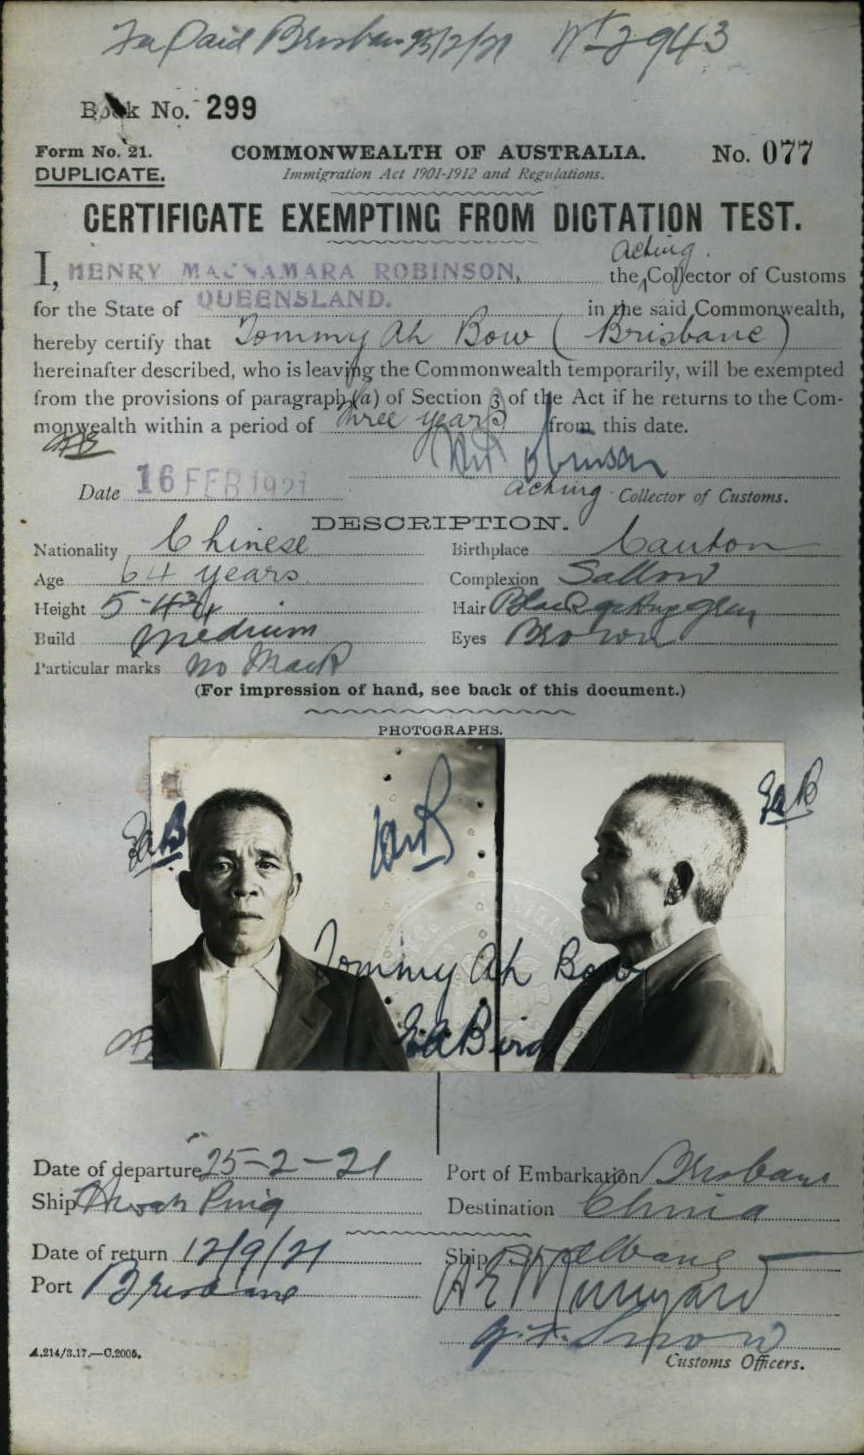 Fee Paid Brisbane 23/2/21 No 2943
Book No. 299
Form No. 21. COMMONWEALTH OF AUSTRALIA. No. 077
DUPLICATE. Immigration Act 1901-1912 and Regulations.
CERTIFICATE EXEMPTING FROM DICTATION TEST.
Acting
I, HENRY MACNAMARA ROBINSON, the Collector of Customs
for the State of QUEENSLAND. in the said Commonwealth,
hereby certify that Tommy Ah Bow (Brisbane)
hereinafter described, who is leaving the Commonwealth temporarily, will be exempted
from the provisions of paragraph (a) of Section 3 of the Act if he returns to the Com-
monwealth within a period of three years from this date.
Date 16 FEB 1921 Acting Collector of Customs.
DESCRIPTION.
Nationality Chinese Birthplace Canton
Age 64 years Complexion Sallow
Height 5-4 3/4 Hair Black going grey
Build medium Eyes Brown
Particular marks No Mark
(For impression of hand, see back of this document.)
PHOTOGRAPHS.
EAB EAB
Tommy Ah Bow
EA Bird
Date of departure 25-2-21 Port of Embarkation Brisbane
Ship Hwah Ping Destination China
Date of return 12/9/21 Ship St Albans
Port Brisbane
Customs Officers.
A.214/3.17.—C.2005.